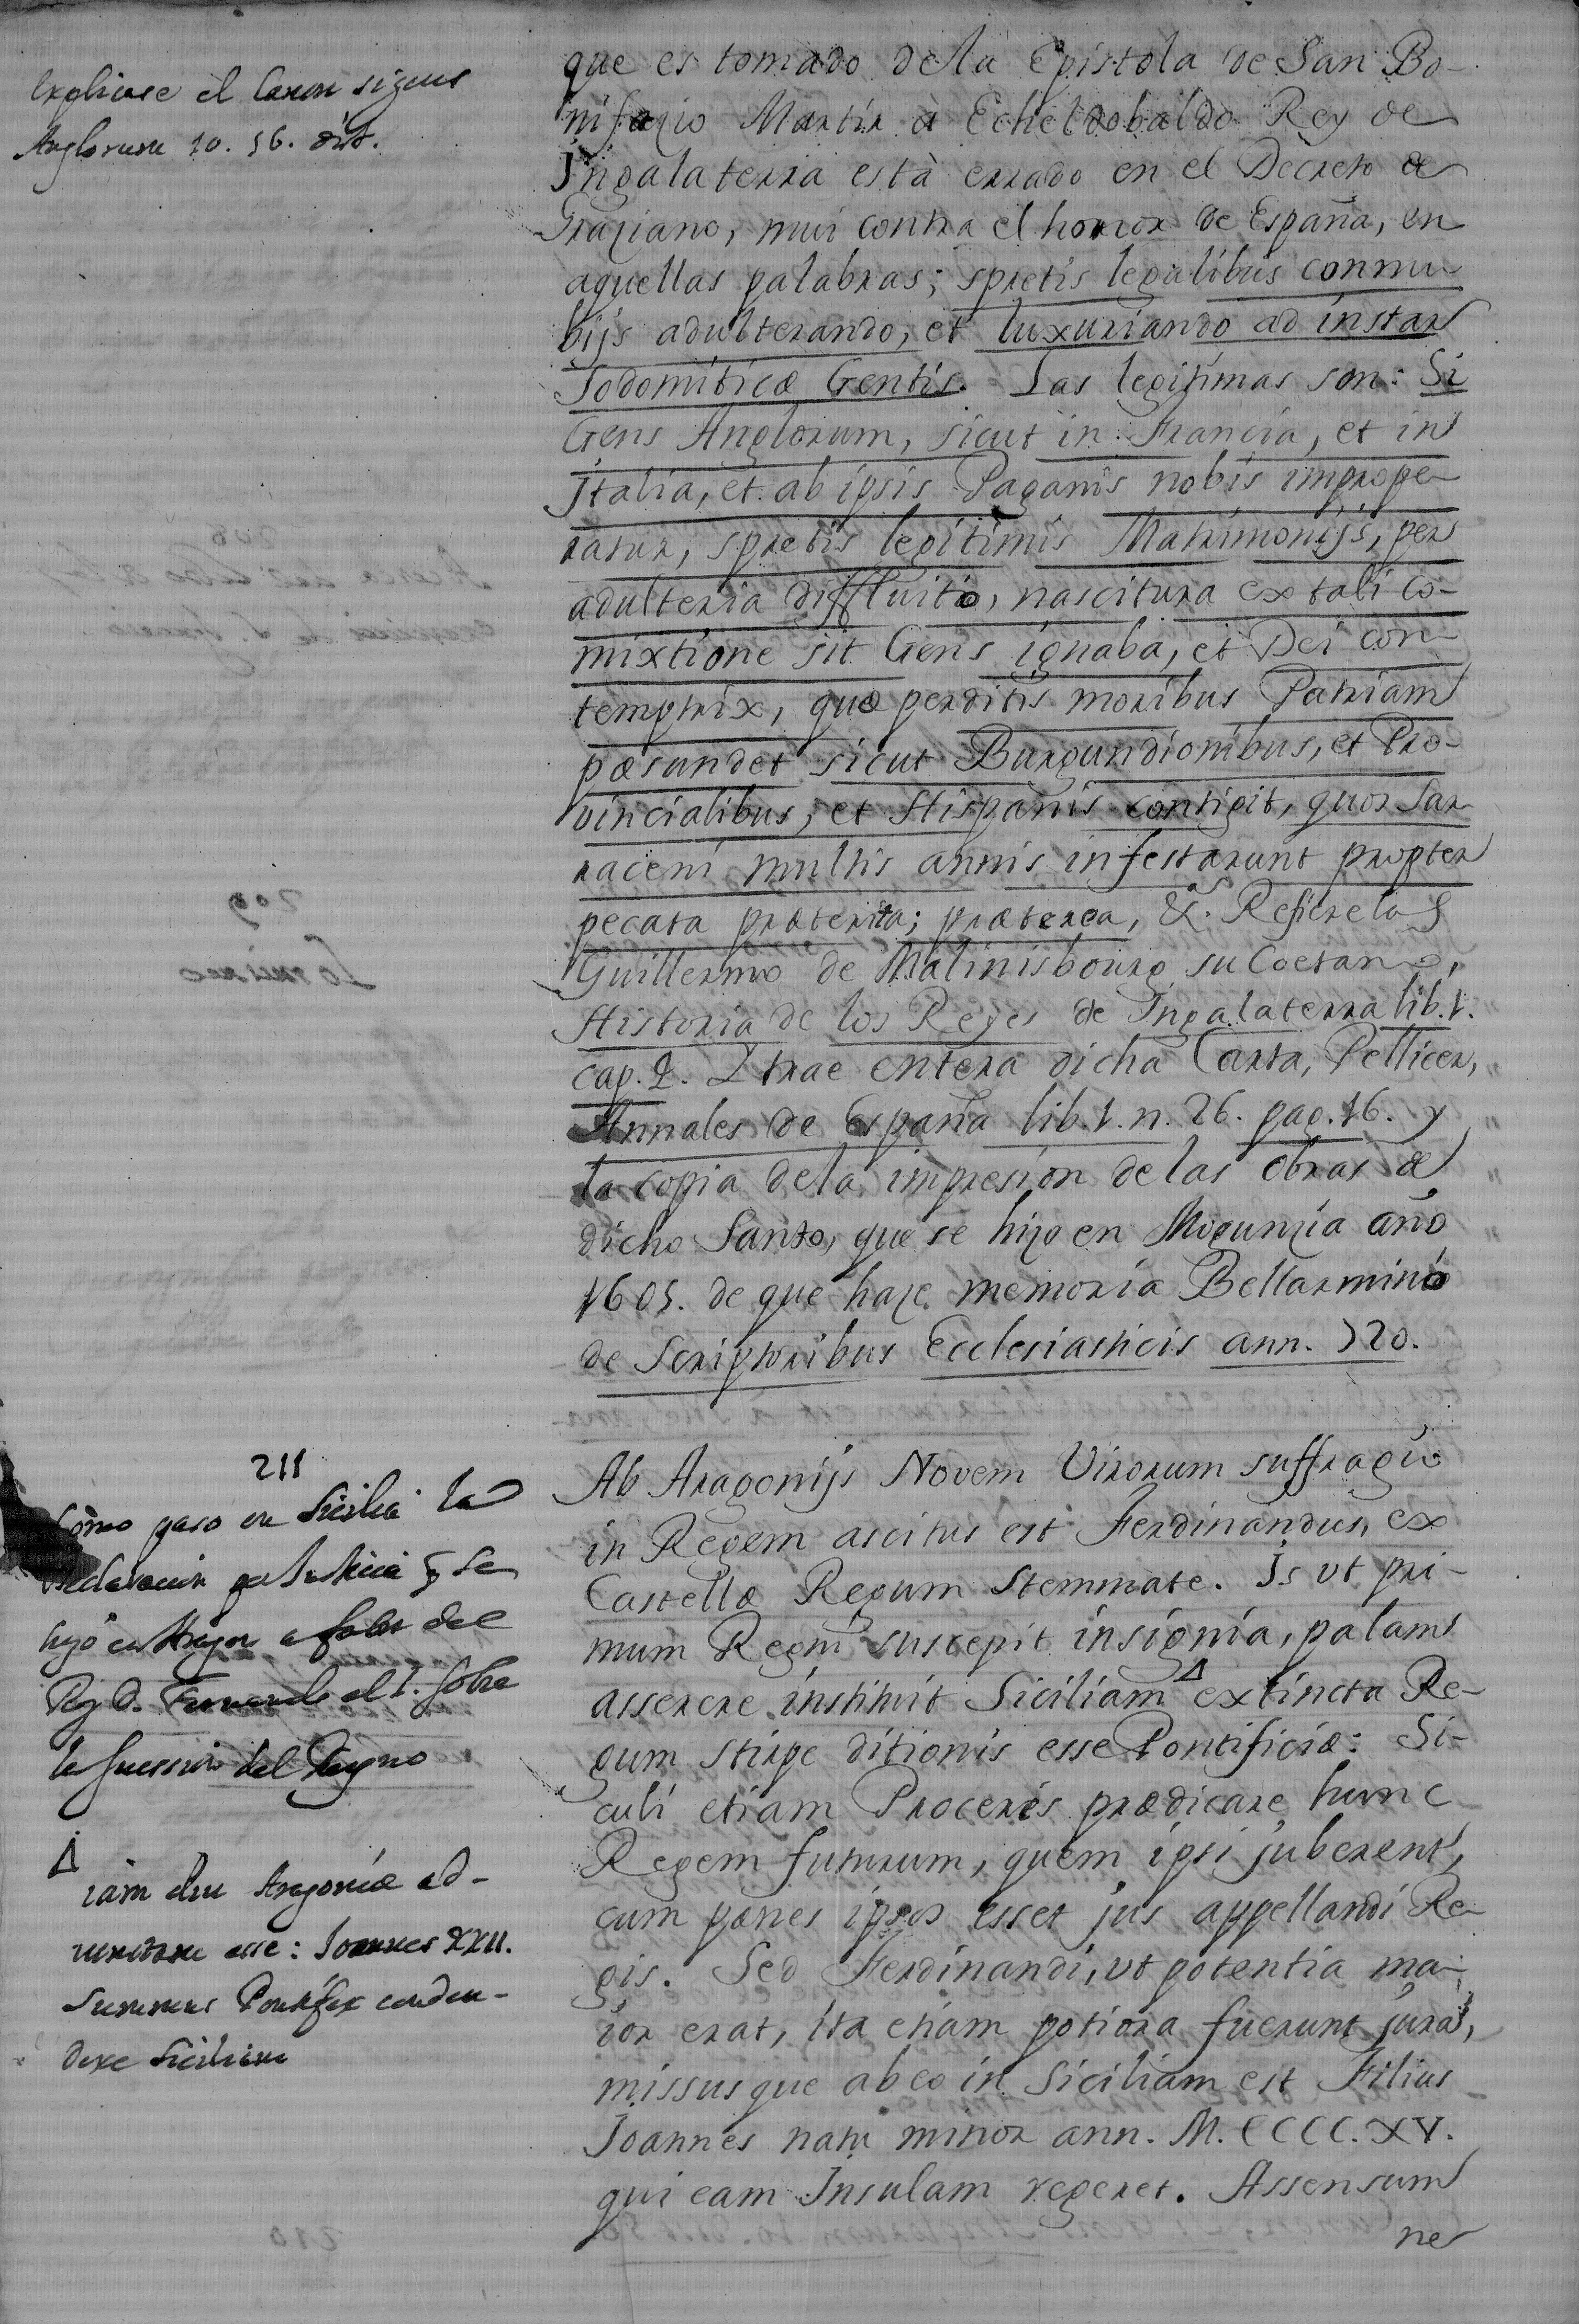 Explicase el Canon si gens
Anglorum 10. 56. dist.
que es tomado de la Epistola de San Bo-
nifazio Martir à Echeldobaldo Rey de
Ingalaterra està errado en el Decreto de
Graziano, mui contra el honor de España, en
aquellas palabras; spretis legalibus connu-
bijs adulterando, et luxuriando ad instar
Sodomiticæ Gentis. Las legitimas son: Si
Gens Anglorum, sicut in Francia, et in
Italia, et ab ipsis Paganis nobis imprope-
ratur, spretis legitimis Matrimonijs, per
adulteria diffluit, nascitura ex tali co-
mixtione sit Gens ignaba, et Dei con-
temptrix, quæ perditis moribus Patriam
pæsundet sicut Burgundionibus, et Pro-
vincialibus, et Hispanis contigit, quos Sar-
raceni multis annis infestarunt propter
pecata præterita; præterea, &. Refierelas
Guillermo de Malinisbourg su Coetano,
Historia de los Reyes de Ingalaterra lib. 1.
cap. 2. Ltrae entera dicha Carta, Pellicer,
Annales de España lib. 1. n. 26. pag. 16. y
la copia de la impresion de las obras de
dicho Santo, que se hizo en Moguncia año
1605. de que haze memoria Bellarmino
de Scriptoribus Ecclesiasticis ann. 720.
211
Cômo paso en Sicilia la
declaracion por Justicia q se
hizo en Aragon a fabor del
Rey D. Fernando el I. sobre
la sucession del Reyno
Δ
iam diu Aragoniæ ad-
Joannes XXII.
Summus Pontifex
Siciliam
Ab Aragonijs Novem Virorum suffragio
in Regem ascitus est Ferdinandus, ex
Castellæ Regum Stemmate. Is ut pri-
mum Regni suscepit insignia, palam
asserere instituit Siciliam Δ extincta Re-
gum stirpe ditionis esse Pontificiæ: Si-
culi etiam Proceres prædicare hunc
Regem futurum, quem ipsi juberent,
cum pænes ipsos esset jus appellandi Re-
gis. Sed Ferdinandi, ut potentia ma-
ior erat, ita etiam potiora fuerunt jura,
missusque ab eo in Siciliam est Filius
Joannes natu minor ann. M.CCCC.XV.
qui eam Insulam regeret. Assensum
ne